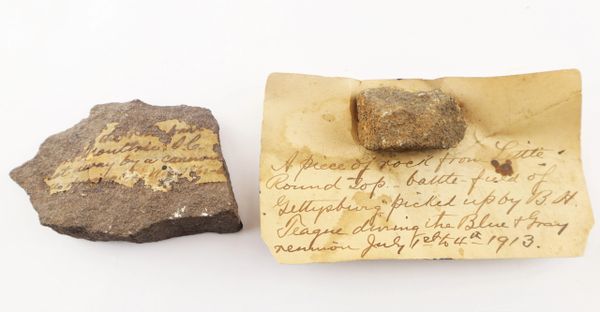 away by a cannon
A piece of rock from Little
Round Top - battle-field of
Gettysburg picked up by B. H.
Teague during the Blue & Gray
reunion July 1st to 4th 1913.